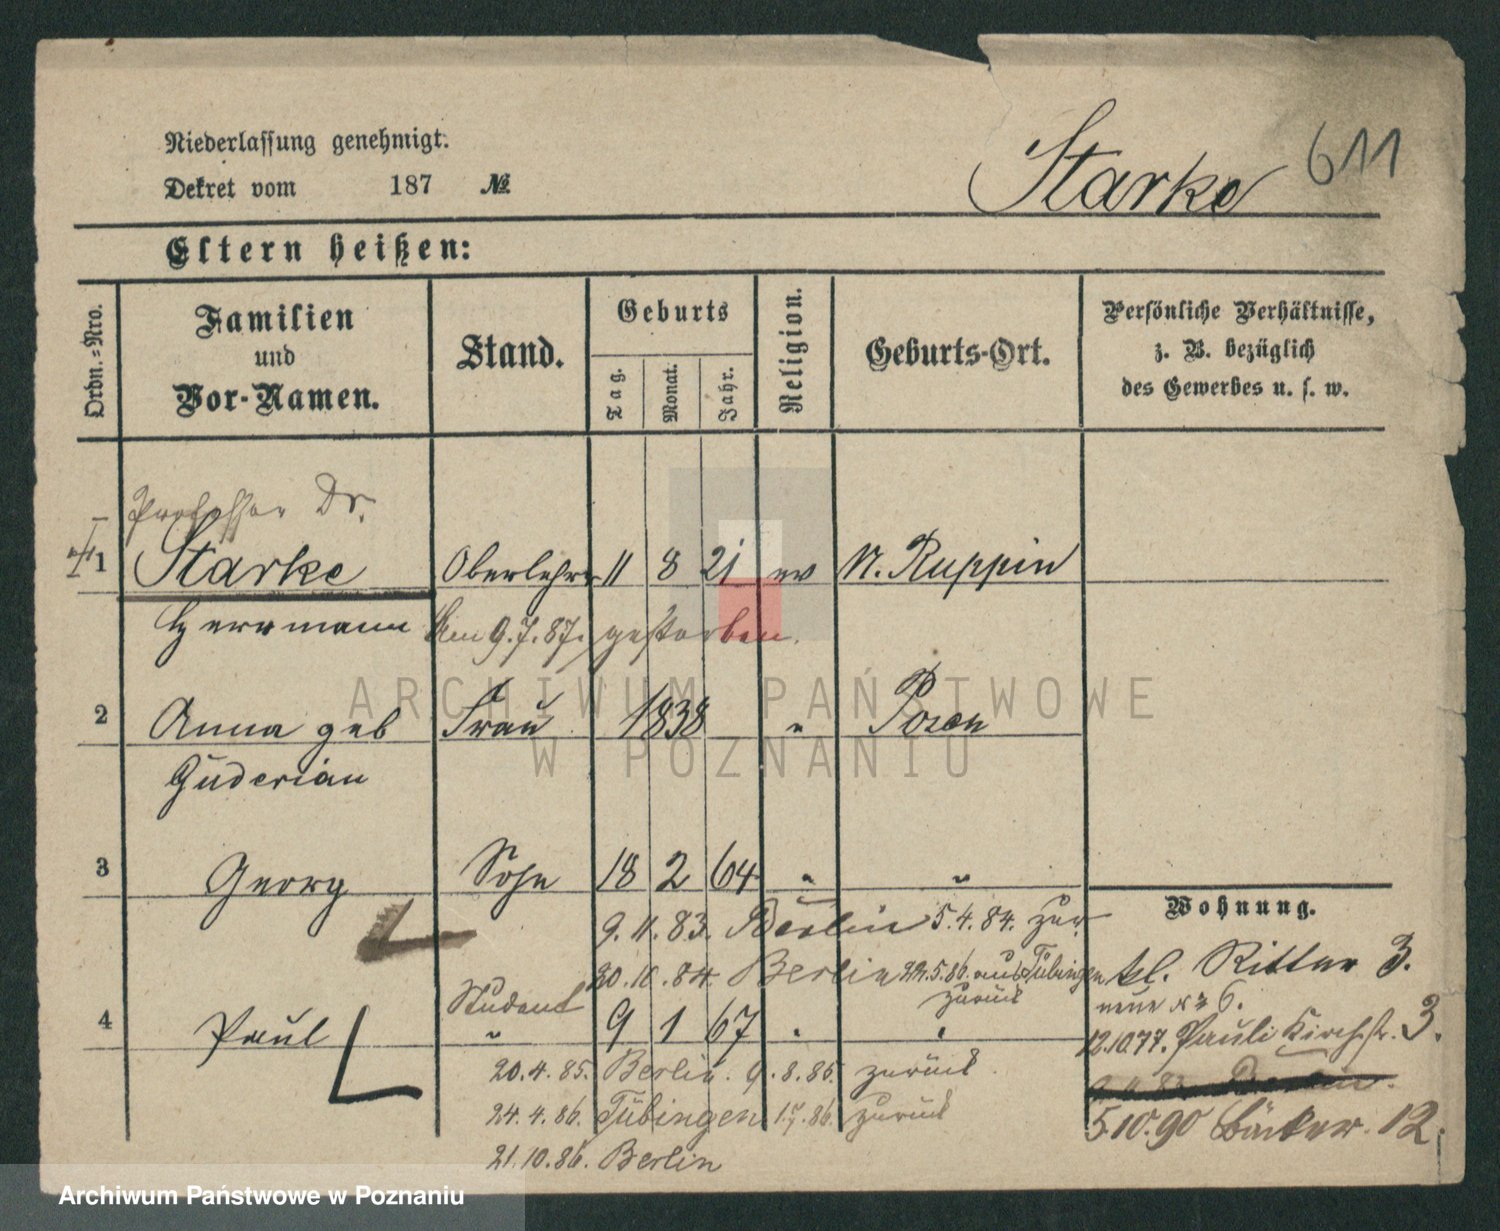 Niederlassung genehmigt.
Dekret vom 187 №
Starke 611
Eltern heißen:
Ordn.=Nro.
Familien
und
Vor-Namen.
Stand.
Geburts
Tag.
Monat.
Jahr.
Religion.
Geburts-Ort.
Persönliche Verhältnisse,
z. B. bezüglich
des Gewerbes u. s. w.
Professor Dr.
1 Starke Oberlehrer 11 8 21 ev N. Ruppin
Herrmann Am 9.7.87. gestorben.
2 Anna geb Frau 1838 " Posen
Guderian
3 Georg Sohn 18 2 64 " "
9.11.83. Berlin 5.4.84. zur.
30.10.84. Berlin 22.5.86. aus Tübingen
zurück
Student
4 Paul " 9 1 67 " "
20.4.85. Berlin. 9.8.86. zurück
24.4.86. Tübingen 1.7.86. zurück
21.10.86. Berlin
Wohnung.
kl. Ritter 3.
neue № 6.
12.10.77. Pauli Kirchstr. 3.
5.10.90 Bäcker. 12.
ARCHIWUM PAŃSTWOWE
W POZNANIU
Archiwum Państwowe w Poznaniu